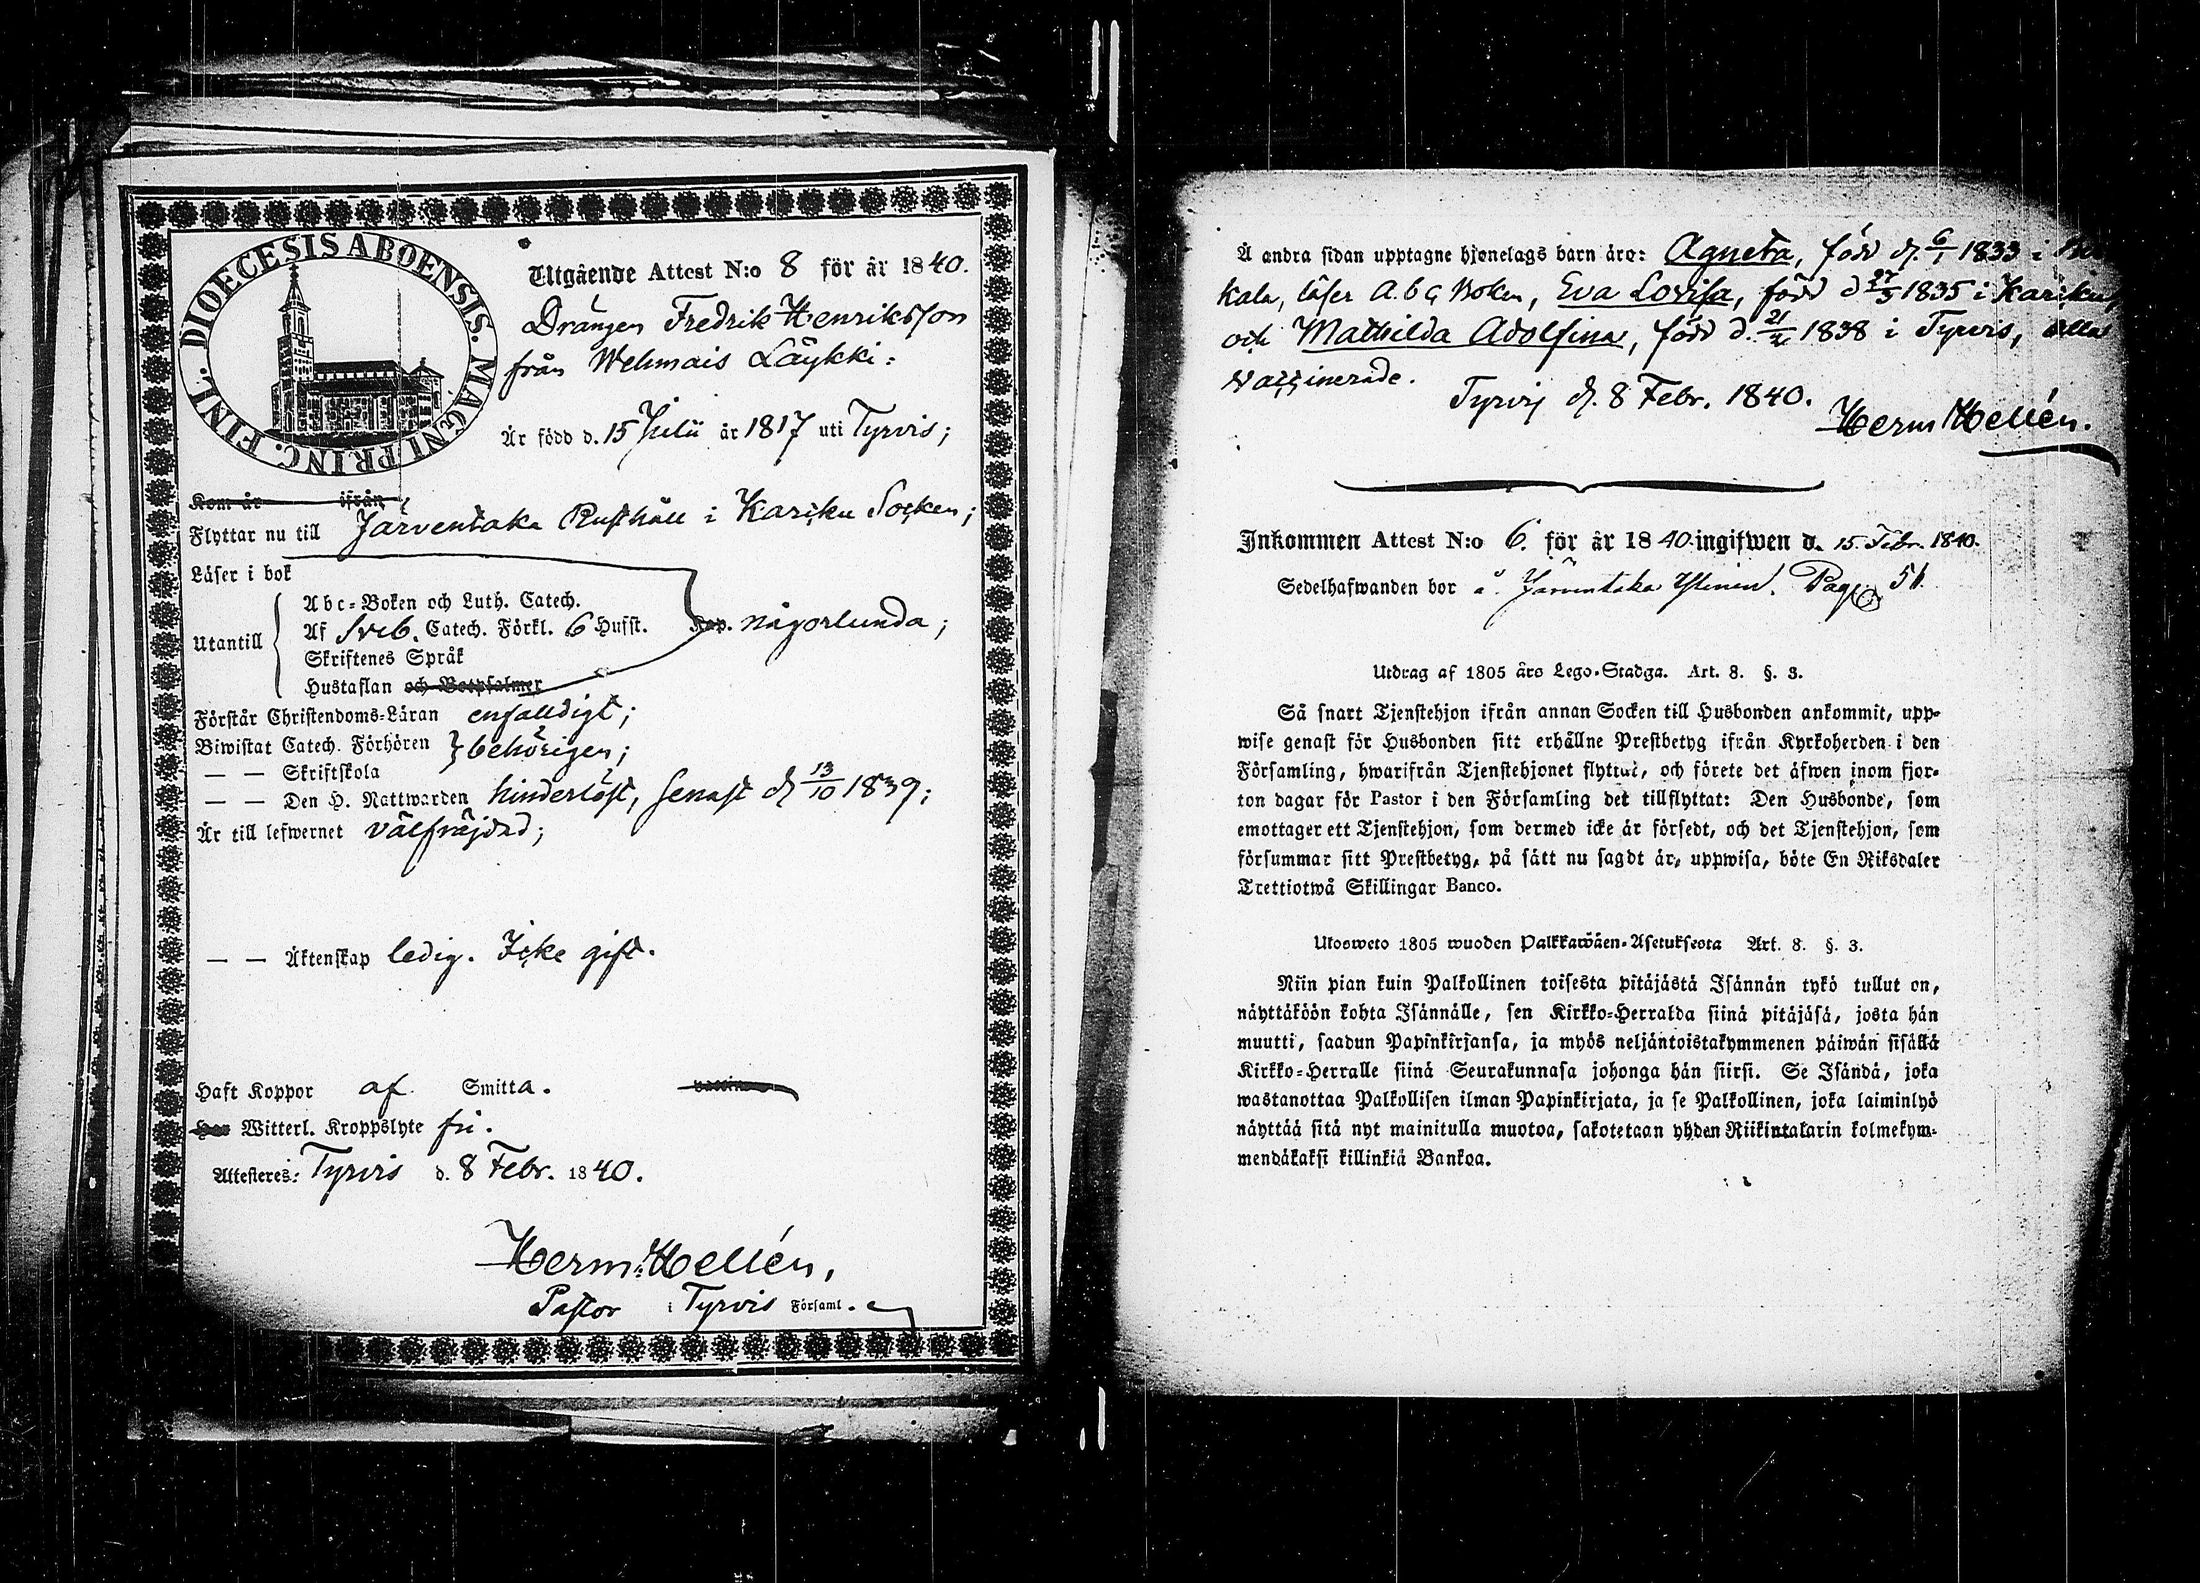 DIOECESIS ABOENSIS. MAGNI PRINC. FINL.
Utgående Attest N:o 8 för år 1840.
Drängen Fredrik Henriksson
från Wehmais Läykki:
Är född d. 15 Julii år 1817 uti Tyrvis;
Kom år ifrån
Flyttar nu till Järventaka Rusthåll i Karkku Socken;
Läser i bok
Utantill
Abc-Boken och Luth. Catech.
Af Sveb. Catech. Förkl. 6 Hufst. Kap. någorlunda;
Skriftenes Språk
Hustaflan och Botpsalmer
Förstår Christendoms-Läran enfalldigt;
Biwistat Catech. Förhören } behörigen;
— — Skriftskola
— — Den H. Nattwarden hinderlöst, senast d 13/10 1839;
Är till lefwernet välfräjdad;
— — Äktenskap ledig. Icke gift.
Haft Koppor af Smitta. vaccin
Har Witterl. Kroppslyte fri.
Attesteres: Tyrvis d. 8 Febr. 1840.
Herm. Hellén,
Pastor i Tyrvis Församl.
Å andra sidan upptagne hjonelags barn äro: Agneta, född d. 6/1 1833 i
kala, läser A.b c Boken, Eva Lovisa, född d 27/5 1835 i Karkku,
och Mathilda Adolfina, född d. 21/2 1838 i Tyrvis, alla
vaccinerade.
Tyrvis d. 8 Febr. 1840.
Herm Hellén.
Inkommen Attest N:o 6. för år 1840. ingifwen d. 15. Febr. 1840.
Sedelhafwanden bor å Järventaka Pag. 51.
Utdrag af 1805 års Lego-Stadga. Art. 8. §. 3.
Så snart Tjenstehjon ifrån annan Socken till Husbonden ankommit, upp-
wise genast för Husbonden sitt erhållne Prestbetyg ifrån Kyrkoherden i den
Församling, hwarifrån Tjenstehjonet flyttat, och förete det äfwen inom fjor-
ton dagar för Pastor i den Församling det tillflyttat: Den Husbonde, som
emottager ett Tjenstehjon, som dermed icke är försedt, och det Tjenstehjon, som
försummar sitt Prestbetyg, på sätt nu sagdt är, uppwisa, böte En Riksdaler
Trettiotwå Skillingar Banco.
Ulosweto 1805 wuoden Palkkawäen-Asetuksesta Art. 8. §. 3.
Niin pian kuin Palkollinen toisesta pitäjästä Isännän tykö tullut on,
näyttäköön kohta Isännälle, sen Kirkko-Herralda siinä pitäjäsä, josta hän
muutti, saadun Papinkirjansa, ja myös neljäntoistakymmenen päiwän sisällä
Kirkko-Herralle siinä Seurakunnasa johonga hän siirsi. Se Isändä, joka
wastanottaa Palkollisen ilman Papinkirjata, ja se Palkollinen, joka laiminlyö
näyttää sitä nyt mainitulla muotoa, sakotetaan yhden Riikintalarin kolmekym-
mendäkaksi killinkiä Bankoa.